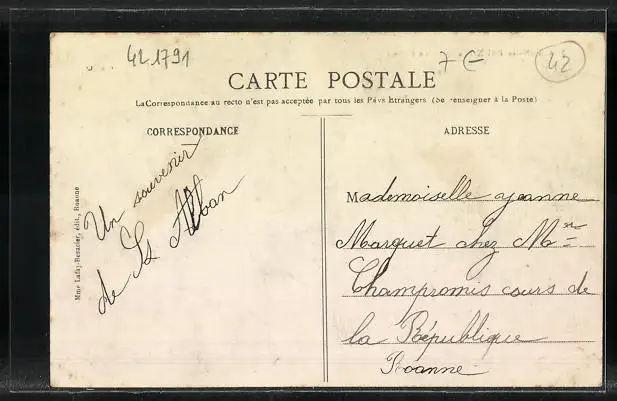 42 1791
7 €
42
CARTE POSTALE
La Correspondance au recto n'est pas acceptée par tous les Pays Etrangers (Se renseigner à la Poste)
CORRESPONDANCE
Un souvenir
de St Alban
Mme Lafay-Besacier, édit., Roanne
ADRESSE
Mademoiselle Jeanne
Marquet chez Mme
Champromis cours de
la République
Roanne